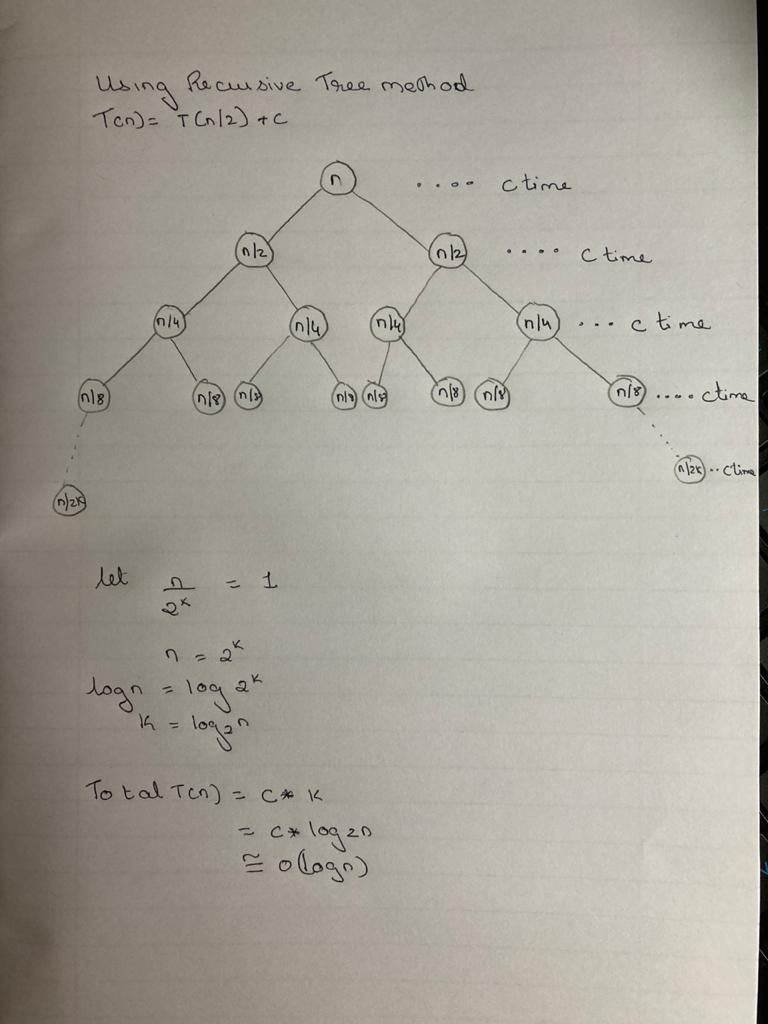 Using Recursive Tree method
T(n)= T(n/2) + C
n .... C time
n/2 n/2 .... C time
n/4 n/4 n/4 n/4 ... C time
n/8 n/8 n/8 n/8 n/8 n/8 n/8 n/8 .... Ctime
n/2K .. Ctime
n/2K
let n/2^K = 1
n = 2^K
logn = log 2^K
K = log₂n
Total T(n) = C* K
= C* log₂n
≅ O(logn)